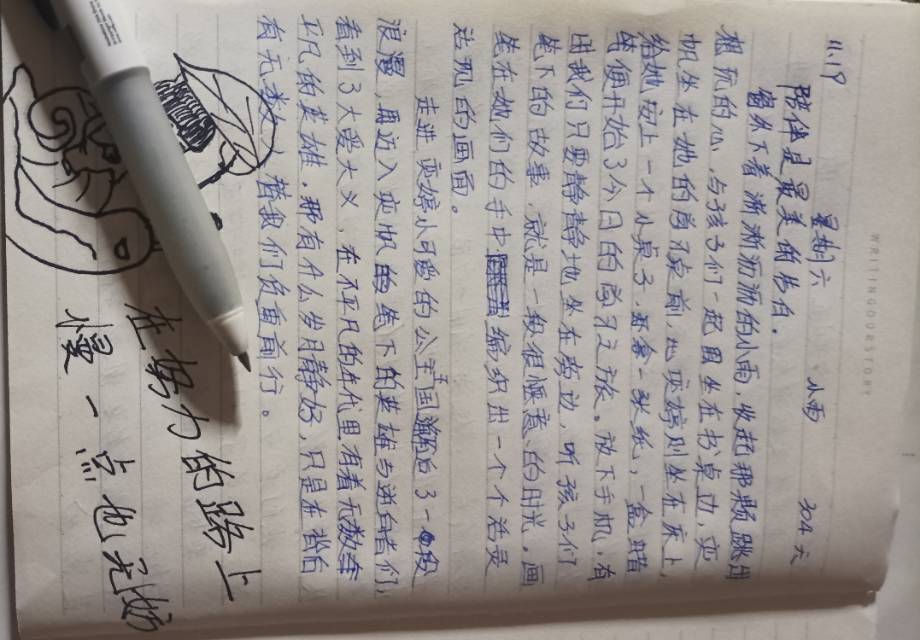 WRITINGOURSTORY
11.19 星期六 小雨 304 六
陪伴是最美的告白。
窗外下着淅淅沥沥的小雨，收起那颗跳出
想玩的心，与孩子们一起围坐在书桌边，奕
帆坐在她的前桌前，而奕婷则坐在床上，
给她安上一个小桌子，拿一张纸，一盒蜡
笔便开始了今日的学习之旅。放下手机，有
时我们只要静静地坐在旁边，听孩子们
笔下的故事，就是一段很惬意的时光。画
笔在她们的手中编织出一个个活灵
活现的画面。
走进奕婷小可爱的公主国邂逅了一段
浪漫，再迈入奕帆的笔下的英雄与逆向者们，
看到了大爱大义，在不平凡的年代里有着无数
平凡的英雄，那有什么岁月静好，只是在
有无数人替我们负重前行。
在努力的路上
慢一点也无妨